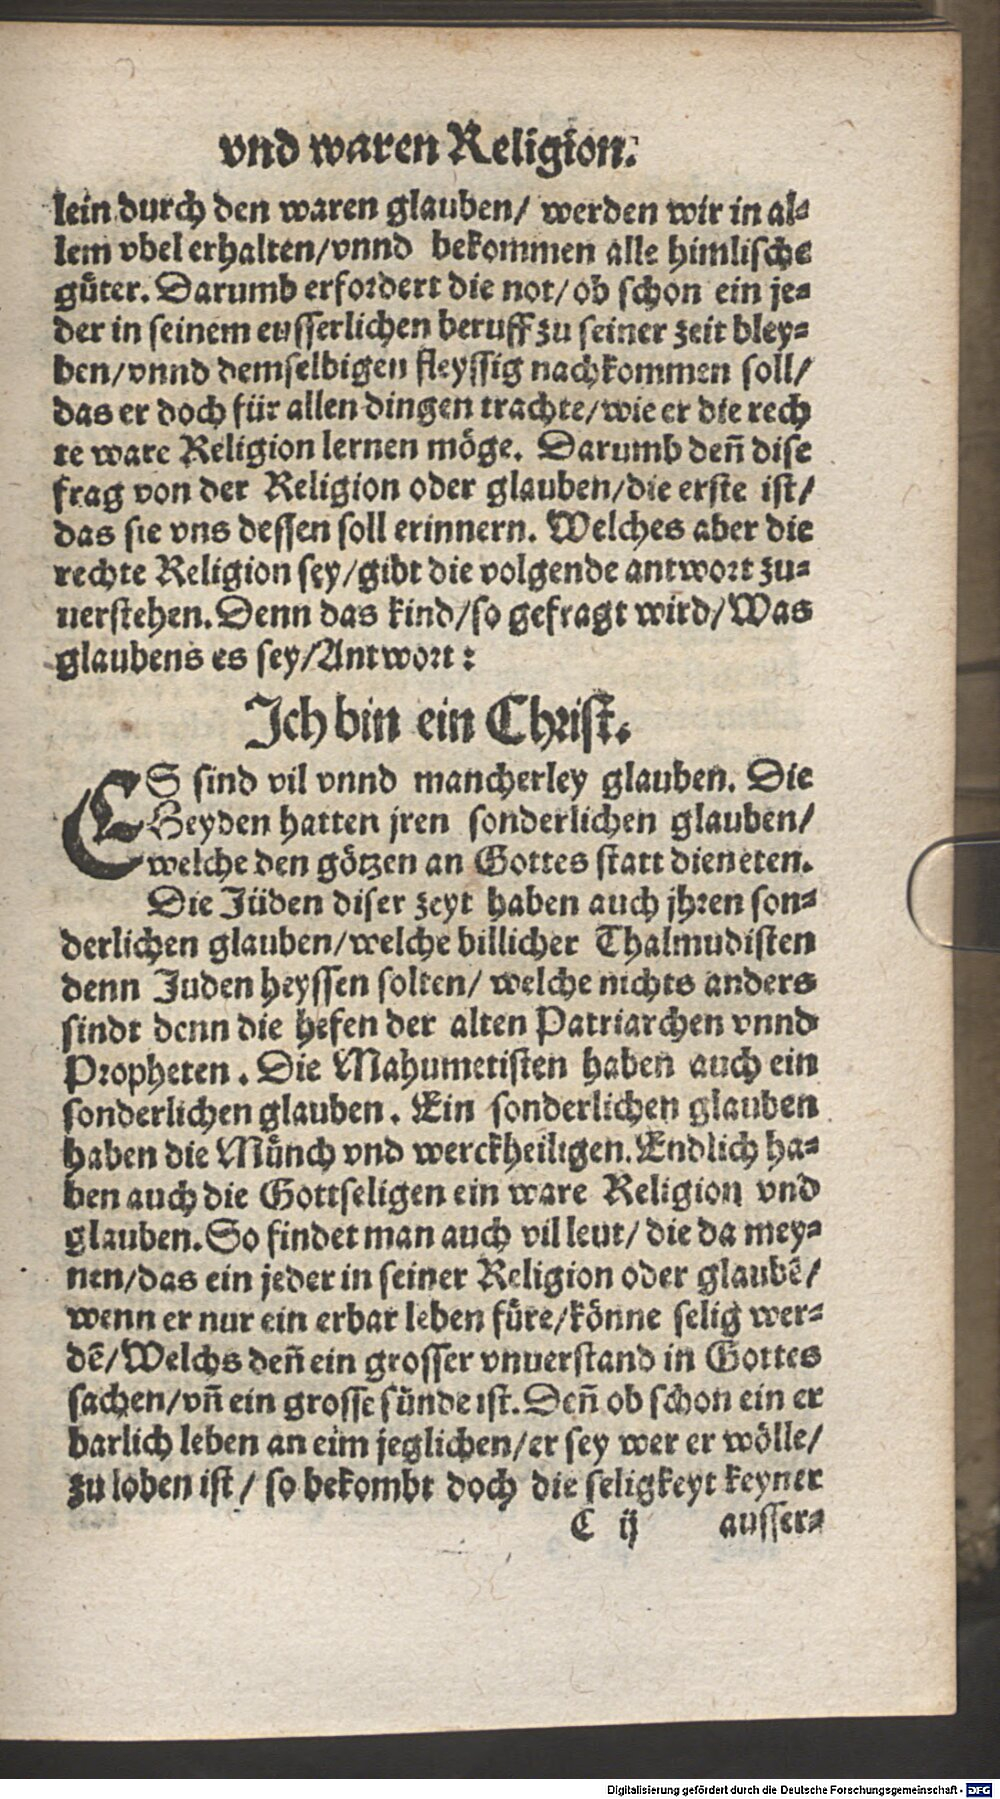 vnd waren Religion.
lein durch den waren glauben/ werden wir in al-
lem vbel erhalten/vnnd bekommen alle himlische
gůter. Darumb erfordert die not/ob schon ein je-
der in seinem eusserlichen beruff zu seiner zeit bley-
ben/vnnd demselbigen fleyssig nachkommen soll/
das er doch für allen dingen trachte/wie er die rech
te ware Religion lernen möge. Darumb den̄ dise
frag von der Religion oder glauben/die erste ist/
das sie vns dessen soll erinnern. Welches aber die
rechte Religion sey/gibt die volgende antwort zu-
uerstehen. Denn das kind/so gefragt wird/Was
glaubens es sey/Antwort:
Ich bin ein Christ.
ES sind vil vnnd mancherley glauben. Die
Heyden hatten jren sonderlichen glauben/
welche den götzen an Gottes statt dieneten.
Die Jüden diser zeyt haben auch jhren son-
derlichen glauben/welche billicher Thalmudisten
denn Juden heyssen solten/ welche nichts anders
sindt denn die hefen der alten Patriarchen vnnd
Propheten. Die Mahumetisten haben auch ein
sonderlichen glauben. Ein sonderlichen glauben
haben die Můnch vnd werckheiligen. Endlich ha-
ben auch die Gottseligen ein ware Religion vnd
glauben. So findet man auch vil leut/ die da mey-
nen/das ein jeder in seiner Religion oder glaubē/
wenn er nur ein erbar leben füre/könne selig wer-
dē/Welchs den̄ ein grosser vnuerstand in Gottes
sachen/vn̄ ein grosse sünde ist. Den̄ ob schon ein er
barlich leben an eim jeglichen/er sey wer er wölle/
zu loben ist/ so bekombt doch die seligkeyt keyner
C ij ausser-
Digitalisierung gefördert durch die Deutsche Forschungsgemeinschaft - DFG